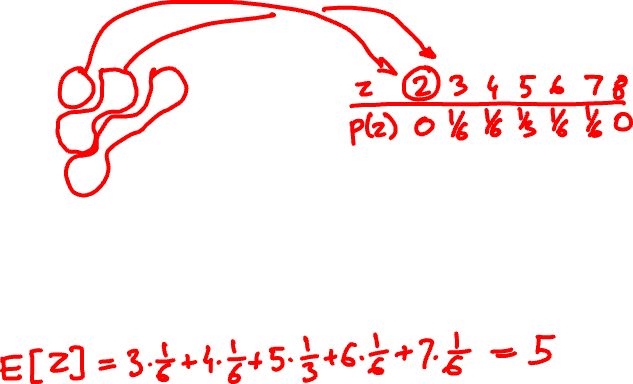 z 2 3 4 5 6 7 8
p(z) 0 1/6 1/6 1/3 1/6 1/6 0
E[Z] = 3·1/6+4·1/6+5·1/3+6·1/6+7·1/6 = 5